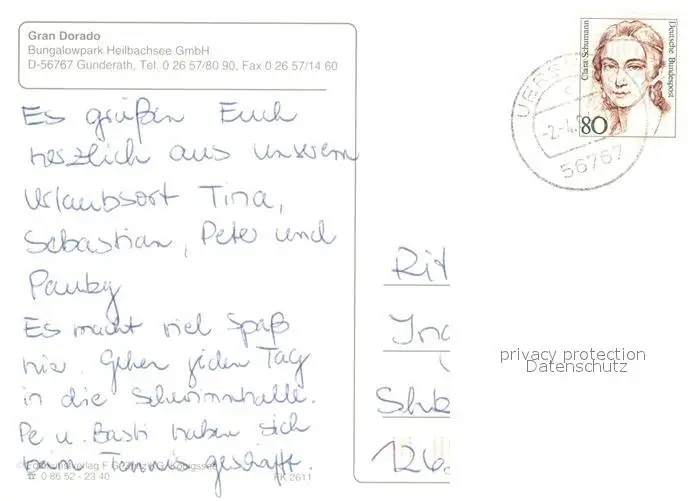 Gran Dorado
Bungalowpark Heilbachsee GmbH
D-56767 Gunderath, Tel. 0 26 57/80 90, Fax 0 26 57/14 60
Clara Schumann
Deutsche Bundespost
80
UERS
-2.-4.
56767
Es grüßen Euch
herzlich aus unserem
Urlaubsort Tina,
Sebastian, Peter und
Es macht viel Spaß
hie. Gehen jeden Tag
in die Schwimmhalle.
Pe u. Basti haben sich
beim Tennis geschafft.
Rit
Ina
126
privacy protection
Datenschutz
☎ 0 86 52 - 23 40
FK 2611